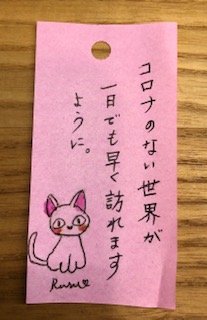 コロナのない世界が
一日でも早く訪れます
ように。
Ruru